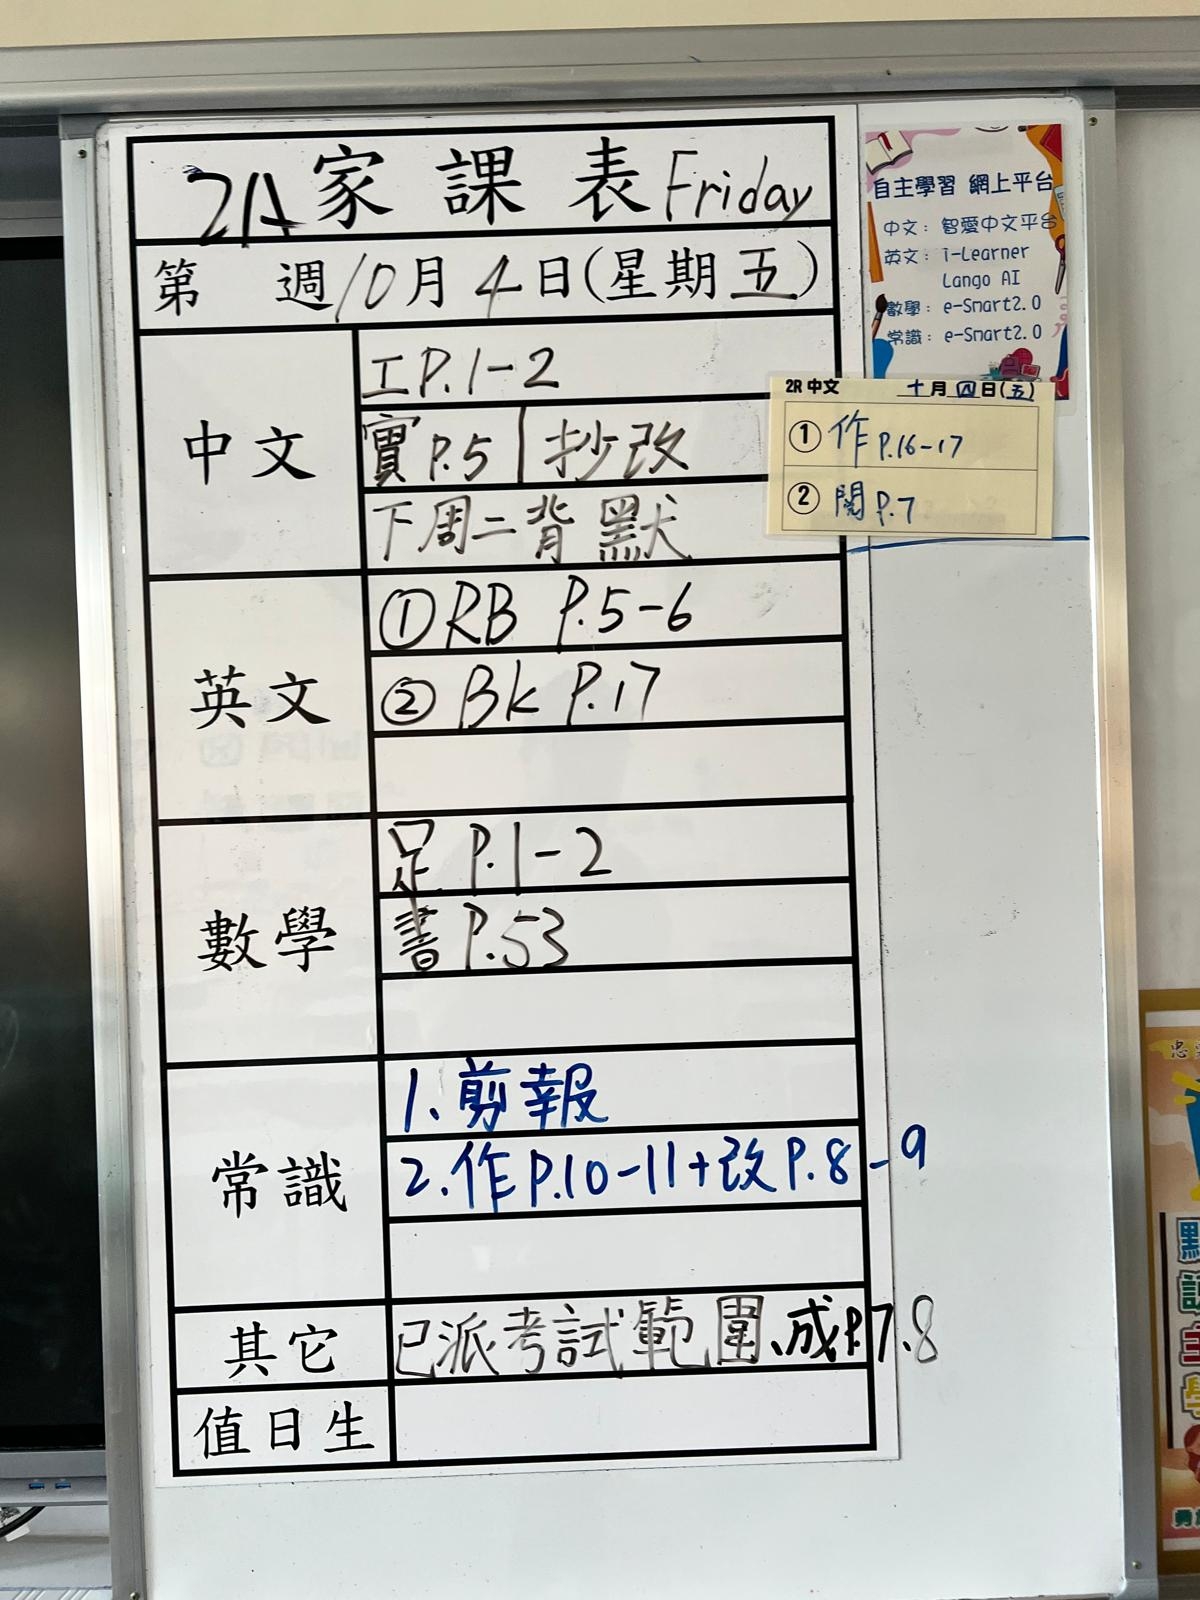 2A家課表 Friday
第 週 10月4日(星期五)
中文
工P.1-2
實P.5 | 抄改
下周二背默
英文
①RB P.5-6
②BK P.17
數學
足 P.1-2
書 P.53
常識
1.剪報
2.作P.10-11+改P.8-9
其它
已派考試範圍、成P.7.8
值日生
自主學習 網上平台
中文：智愛中文平台
英文：i-Learner
Lango AI
數學：e-Smart2.0
常識：e-Smart2.0
2R 中文 十月四日(五)
① 作 P.16-17
② 閱 P.7